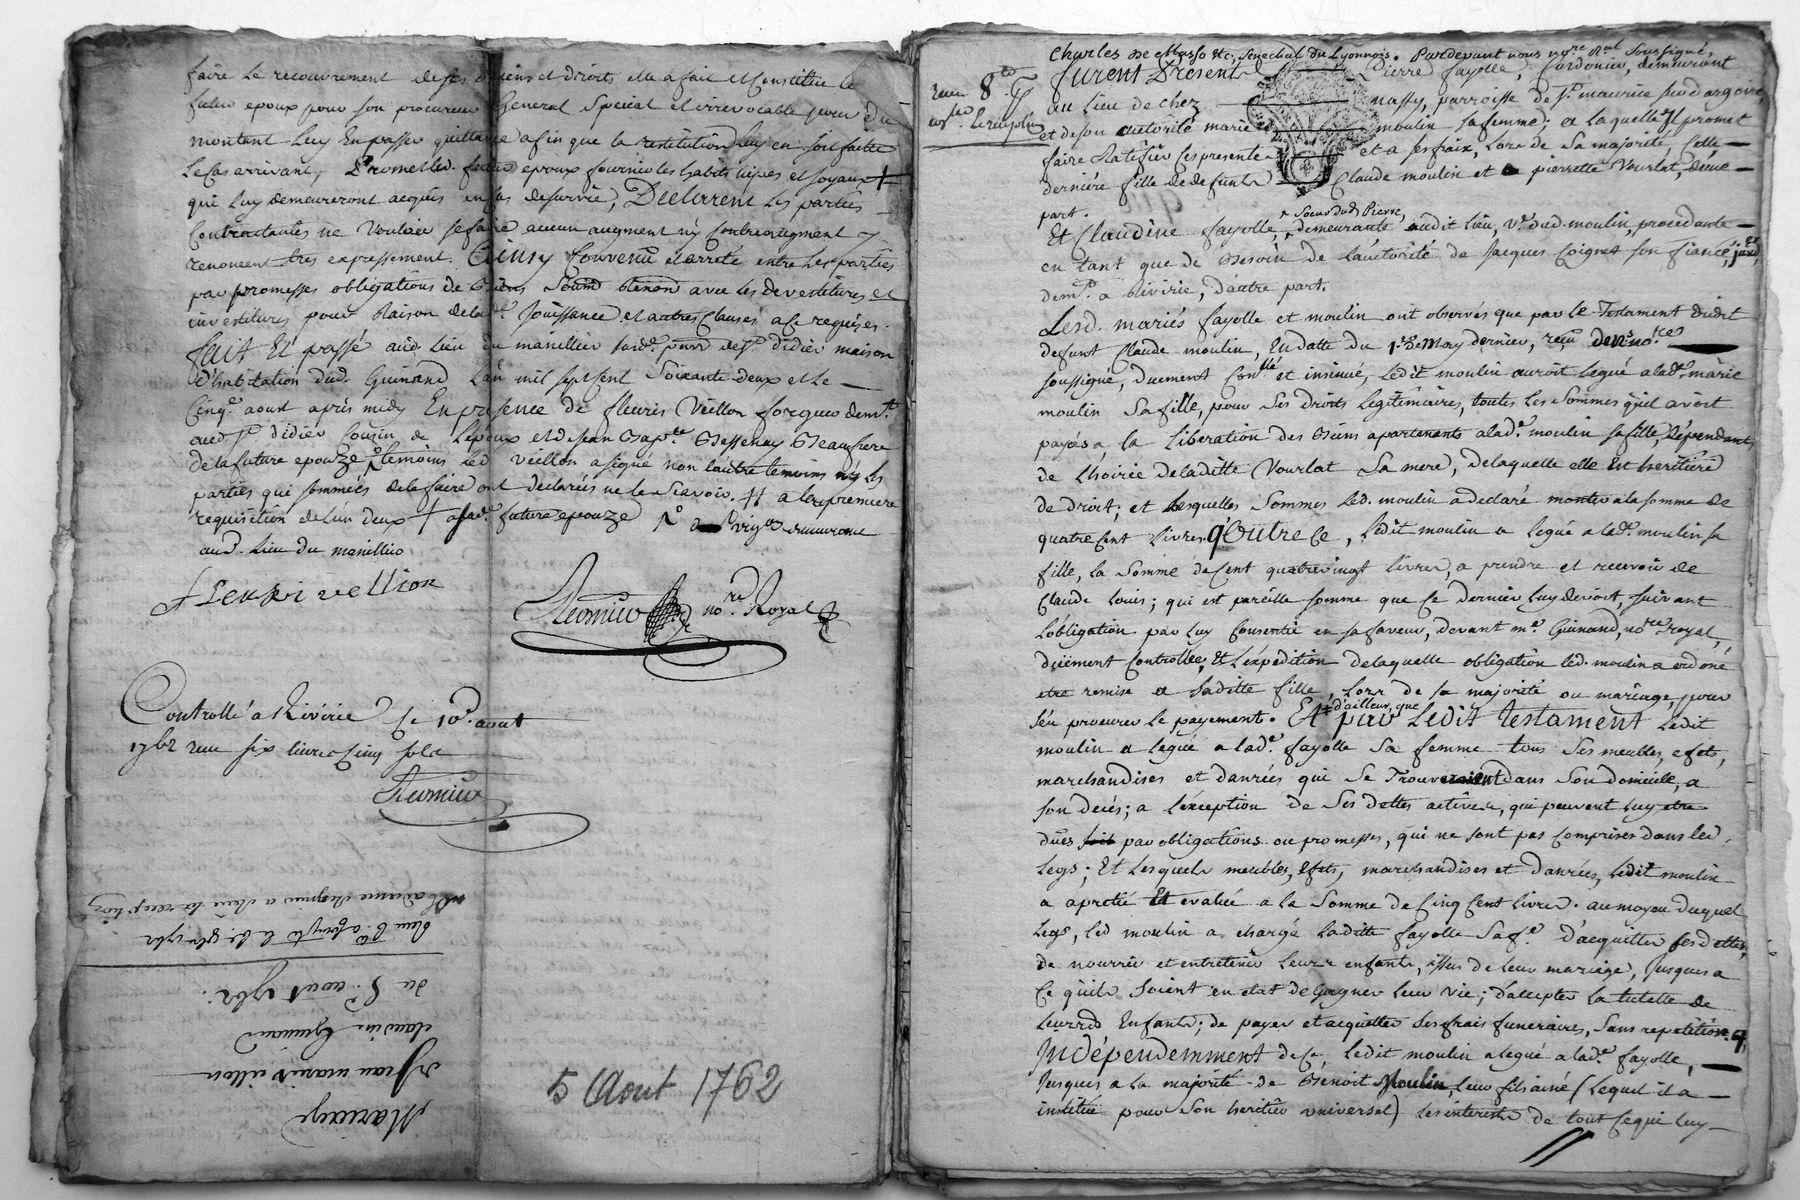 faire le recouvrement de ses biens et droits elle a fait et Constitue le
futur epoux pour son procureur General Special et irrevocable pour du
montant luy En passer quittance afin que la restitution luy en soit faitte
le Cas arrivant, Promet led. futur epoux fournir les habits nipes et joyaux +
qui luy demeureront acquis en Cas de survie, Declarent les parties
Contractantes ne Vouloir se faire aucun augment ny Contreaugment y
renoncent tres expressement. Ainsy Convenu et arreté entre les parties
par promesses obligations de Biens avec les devestitures et
investitures pour Raison de lad. Jouissance et autres Clauses a ce requises.
fait Et passé aud. Lieu du manillier parr. de St. didier maison
d'habitation dud. Guinand l'an mil sept Cent Soixante deux et le
Cinq.e aoust après midy En presence de fleuris Vellion demt.
aud. St. didier Cousin de l'Epoux et de Jean Bap.te Bessenay Beaufrere
de la future epouze temoins led. Vellion a signé non l'autre temoins ny les
parties qui sommées de le faire ont declarées ne le Scavoir. a la premiere
requisition de l'un deux + a lad. future epouze demeurant
aud. Lieu du manillier
fleuri vellion
no.re Royal
Controllé a Riverie le 10e. aout
1762 reçu six livres Cinq sols
Mariage
Jean marie vellion
claudine Guinand
du 5. aout 1762.
5 Aout 1762
Charles de Masso &c, Senechal du Lyonnois. Pardevant nous no.re R.al Soussigné,
furent Presents Pierre fayolle, Cordonier, demeurant
au lieu de chez nassy, parroisse de St. maurice sur dargoire,
et de son autorité marie moulin sa femme; a laquelle il promet
faire Ratifier Ces presentes et a ses fraix, lors de Sa majorité, Cette
derniére fille de defunts Claude moulin et pierrette Vourlat, d'une
part.
Et Claudine fayolle, soeur dud. Pierre, demeurante audit lieu, v.e dud. moulin, procédante
en tant que de Besoin de l'autorité de Jacques Coignet son fiancé,
dem.t a Riverie, d'autre part.
Lesd. mariés fayolle et moulin ont observés que par le Testament dudit
defunt Claude moulin, En datte du 1.er May dernier, reçu
soussigné, duement Con.lé et insinué, ledit moulin auroit legué a lad.e marie
moulin Sa fille, pour Ses droits legitimaires, toutes les Sommes qu'il avoit
payés a la liberation des Biens apartenants a lad.e moulin sa fille, dépendants
de l'hoirie de laditte Vourlat Sa mere, de laquelle elle Est heritiére
de droit; et lesquelles Sommes led. moulin a declaré monter a la somme de
quatre Cent livres. Outre Ce, ledit moulin a legué a lad.e moulin sa
fille, la Somme de Cent quatrevingt livres, a prendre et recevoir de
Claude Louis; qui est pareille somme que Ce dernier luy devoit, suivant
l'obligation par luy Consentie en sa faveur, devant m.e Guinand, no.re royal,
düement Controllée, Et l'expédition de laquelle obligation led. moulin a ordoné
etre remise a Saditte fille, lors de sa majorité ou mariage, pour
s'en procurer le payement. Et d'ailleur, que par Ledit Testament ledit
moulin a legué a lad.e fayolle Sa femme tous Ses meubles, efets,
marchandises et danrées qui Se Trouveroient dans Son domicile, a
son decés; a l'éxception de Ses dettes actives, qui peuvent luy etre
dües par obligations ou promesses, qui ne sont pas Comprises dans led.
legs; Et lesquels meubles, efets, marchandises et Danrées, ledit moulin
a aprétié Et evalué a la Somme de Cinq Cent livres. au moyen duquel
legs, led. moulin a chargé laditte fayolle Sa fe. d'acquitter ses dettes,
de nourrir et entretenir leurs enfants, issus de leur mariage, Jusques a
Ce qu'ils Soient en etat de Gagner leur vie; d'accepter la tutelle de
leursd. Enfants; de payer et acquitter Ses frais funeraires, Sans repetition.
Indépendemment de Ce, ledit moulin a legué a lad.e fayolle,
Jusques a la majorité de Benoit Moulin, leur fils ainé (lequel il a
institué pour Son heritier vniversel) les interets de tout Ce qui luy